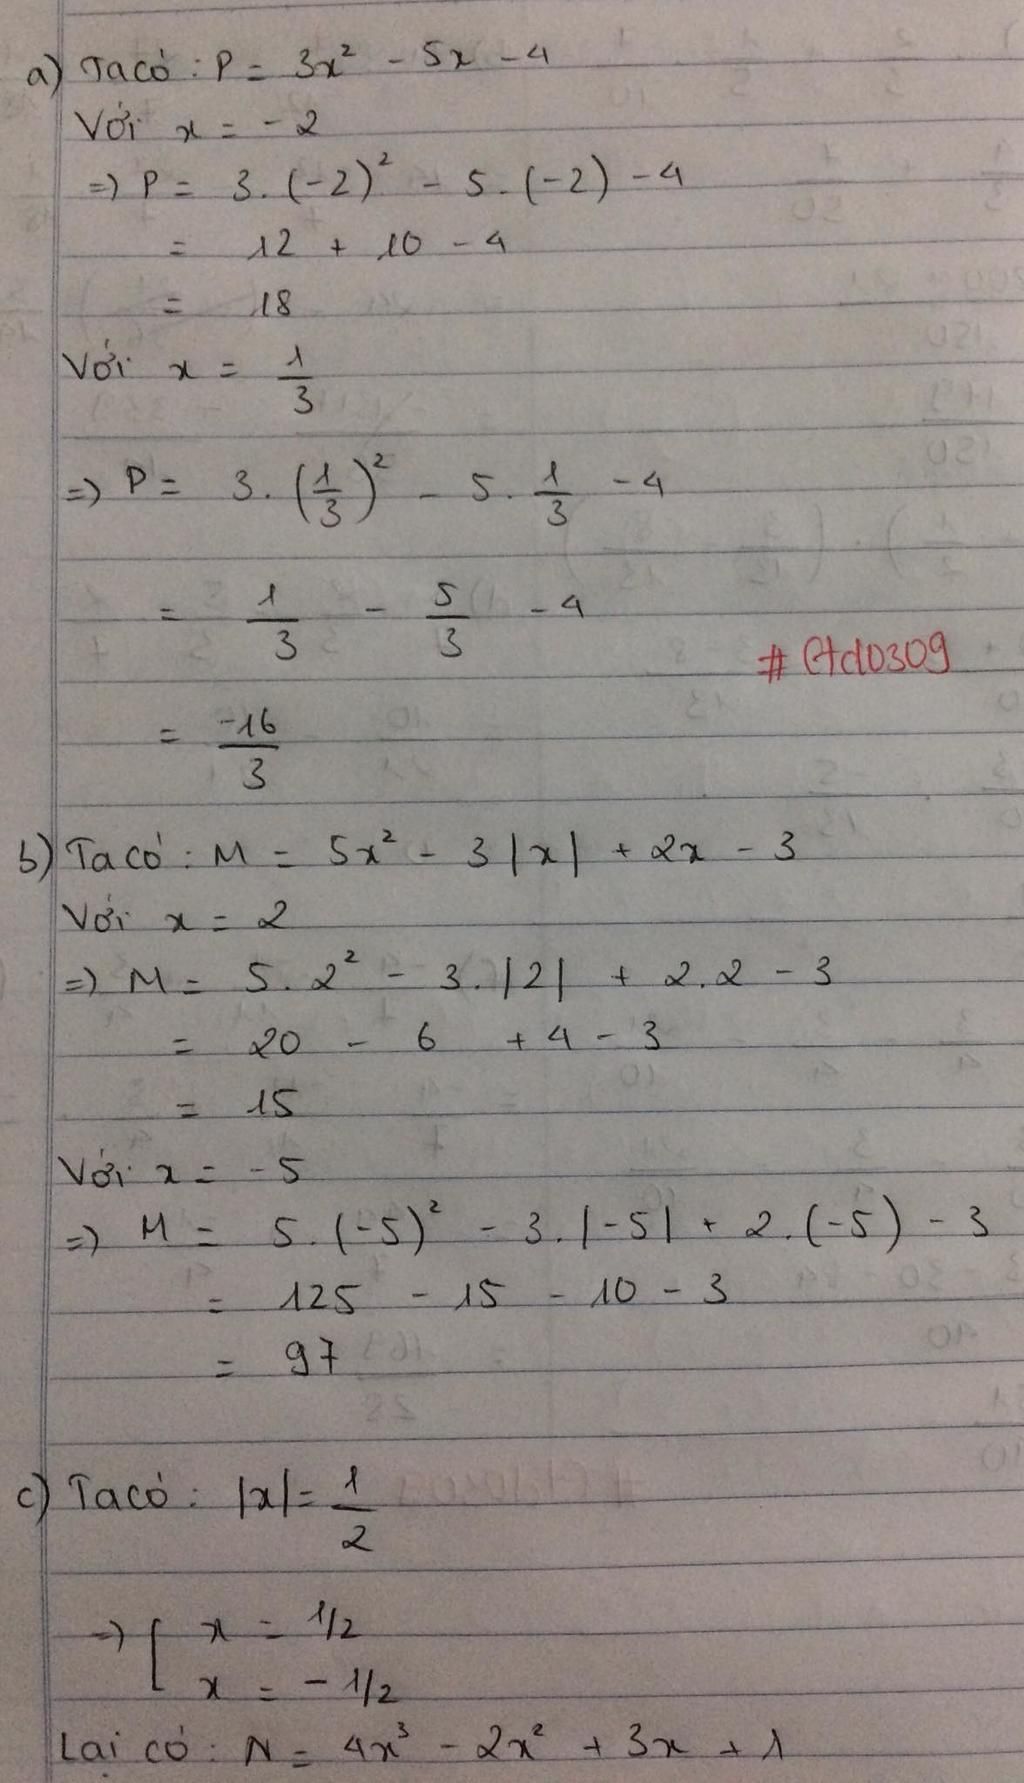 a) Ta có : P = 3x² - 5x - 4
Với x = -2
=> P = 3.(-2)² - 5.(-2) - 4
= 12 + 10 - 4
= 18
Với x = 1/3
=> P = 3.(1/3)² - 5.1/3 - 4
= 1/3 - 5/3 - 4
= -16/3
b) Ta có : M = 5x² - 3|x| + 2x - 3
Với x = 2
=> M = 5.2² - 3.|2| + 2.2 - 3
= 20 - 6 + 4 - 3
= 15
Với x = -5
=> M = 5.(-5)² - 3.|-5| + 2.(-5) - 3
= 125 - 15 - 10 - 3
= 97
c) Ta có : |x| = 1/2
=> [ x = 1/2
x = -1/2
Lại có : N = 4x³ - 2x² + 3x + 1